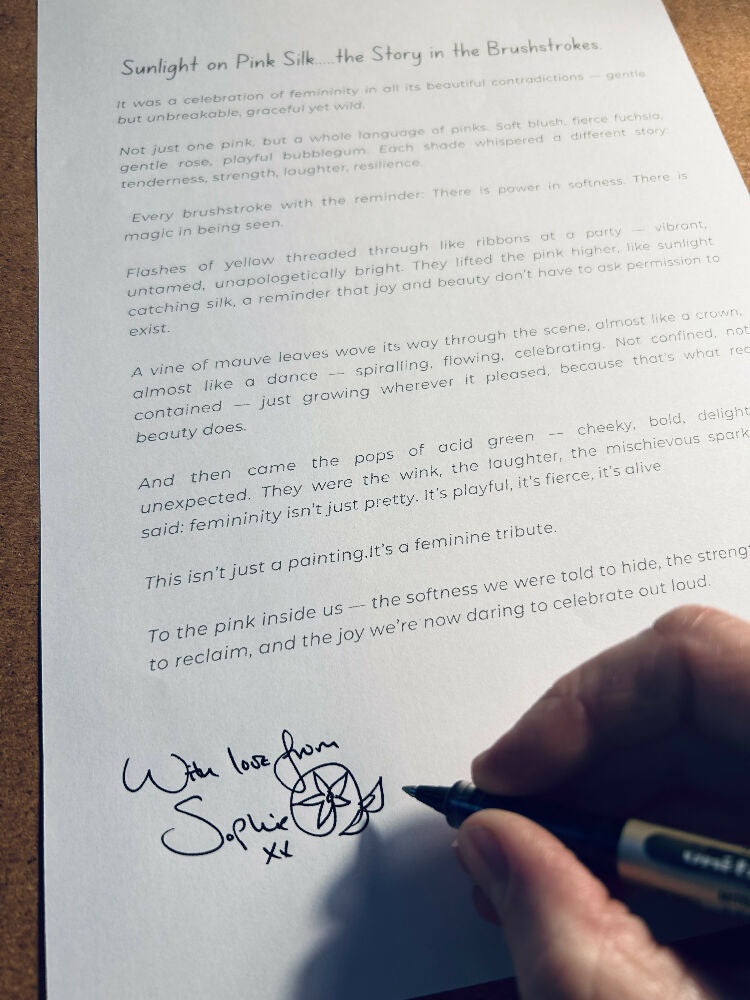 Sunlight on Pink Silk.....the Story in the Brushstrokes.
It was a celebration of femininity in all its beautiful contradictions — gentle
but unbreakable, graceful yet wild.
Not just one pink, but a whole language of pinks. Soft blush, fierce fuchsia,
gentle rose, playful bubblegum. Each shade whispered a different story:
tenderness, strength, laughter, resilience.
Every brushstroke with the reminder: There is power in softness. There is
magic in being seen.
Flashes of yellow threaded through like ribbons at a party — vibrant,
untamed, unapologetically bright. They lifted the pink higher, like sunlight
catching silk, a reminder that joy and beauty don't have to ask permission to
exist.
A vine of mauve leaves wove its way through the scene, almost like a crown,
almost like a dance — spiralling, flowing, celebrating. Not confined, not
contained — just growing wherever it pleased, because that's what
beauty does.
And then came the pops of acid green — cheeky, bold,
unexpected. They were the wink, the laughter, the mischievous
said: femininity isn't just pretty. It's playful, it's fierce, it's alive
This isn't just a painting.It's a feminine tribute.
To the pink inside us — the softness we were told to hide, the
to reclaim, and the joy we're now daring to celebrate out loud.
With love from
Sophie
xx